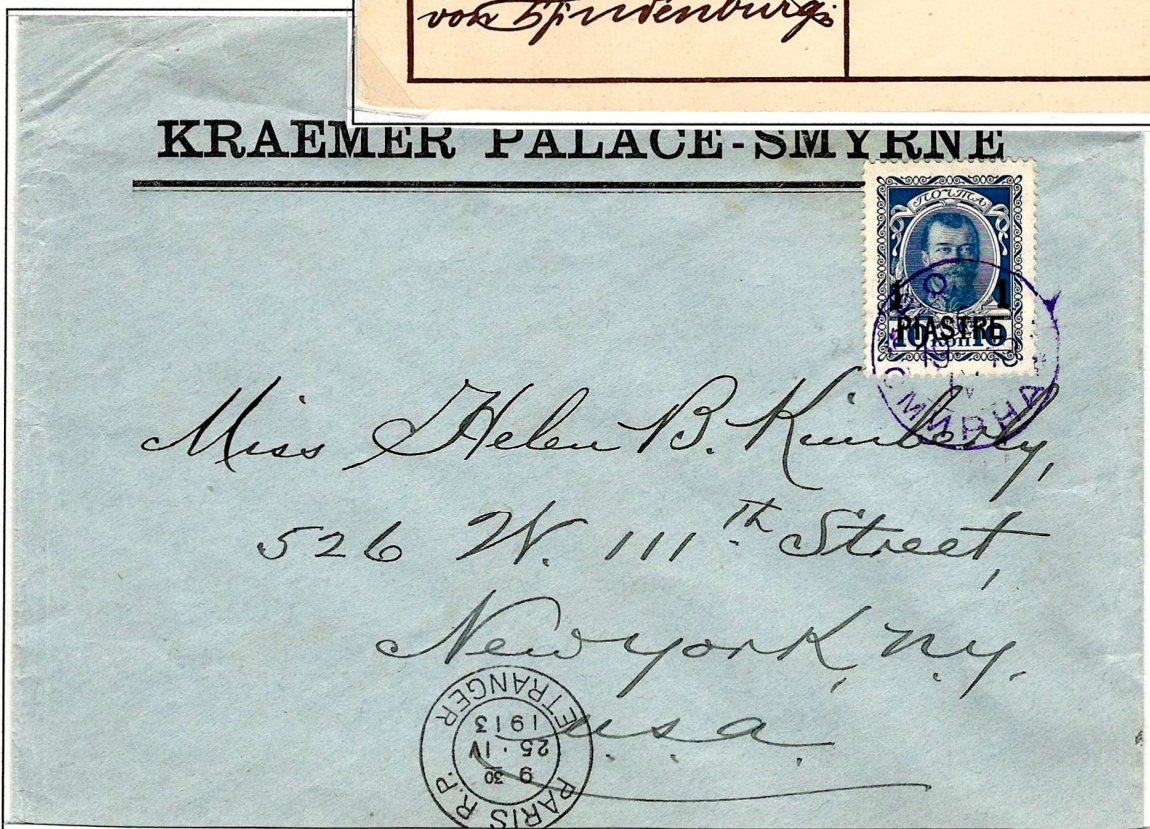 von Hindenburg
KRAEMER PALACE-SMYRNE
ПОЧТА
1 1
PIASTRE
10 КОП 10
СМИРНА
Miss Helen B. Kimberly,
526 W. 111th Street,
New York, N.Y.
U.S.A.
PARIS R.P.
ETRANGER
9 30
25 · IV
1913